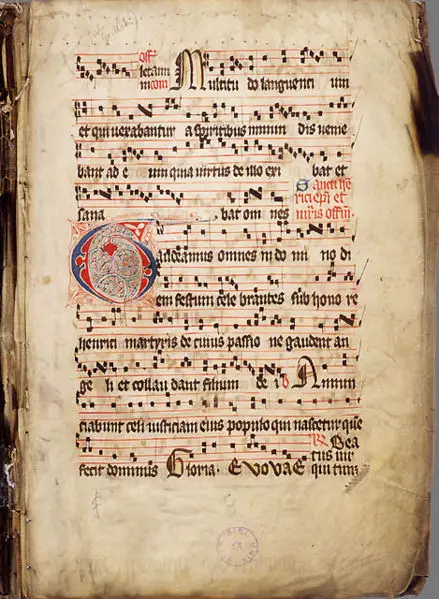 Off
letam
in com Multitu do languenti um
et qui vexabantur a spiritibus inmun dis venie
bant ad e um quia virtus de illo exi bat et
sana bat om nes
Sancti he
rici epi et
mris offm.
Gaudeamus omnes in do mi no di
em festum cele brantes sub hono re
henrici martyris de cuius passio ne gaudent an
ge li et collau dant filium de i Annun
ciabunt celi iusticiam eius populo qui nascetur que
fecit dominus Gloria. Evovae
Bea
tus vir
qui tim